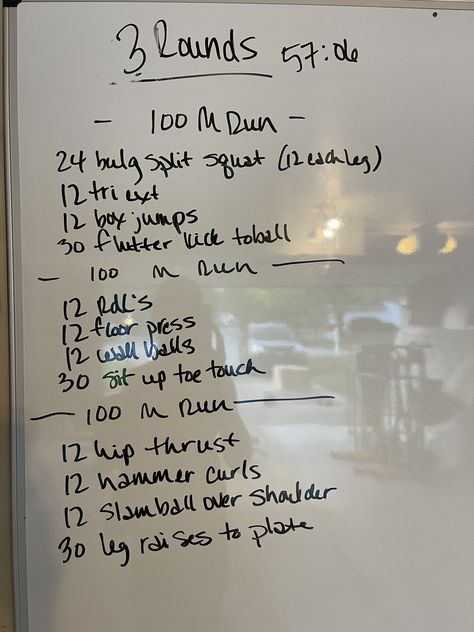 3 Rounds 57:06
- 100 M Run -
24 bulg split squat (12 each leg)
12 tri ext
12 box jumps
30 flutter kick to ball
- 100 M Run -
12 RDL's
12 floor press
12 wall balls
30 sit up toe touch
- 100 M Run -
12 hip thrust
12 hammer curls
12 slamball over shoulder
30 leg raises to plate